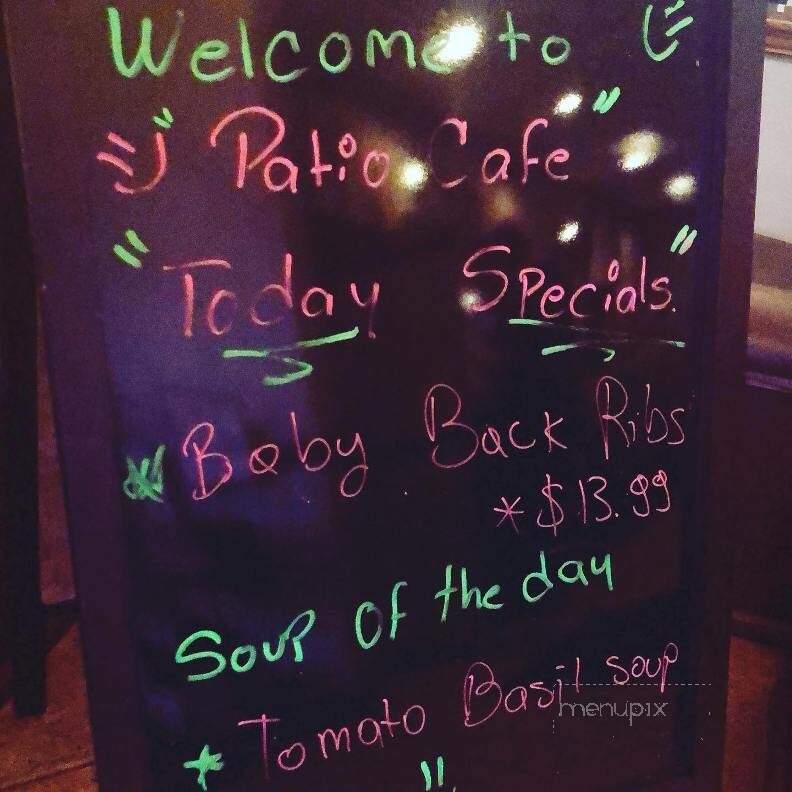 Welcome to
Patio Cafe"
"Today Specials."
* Baby Back Ribs
* $13.99
Soup Of the day
* Tomato Basil soup
menupix